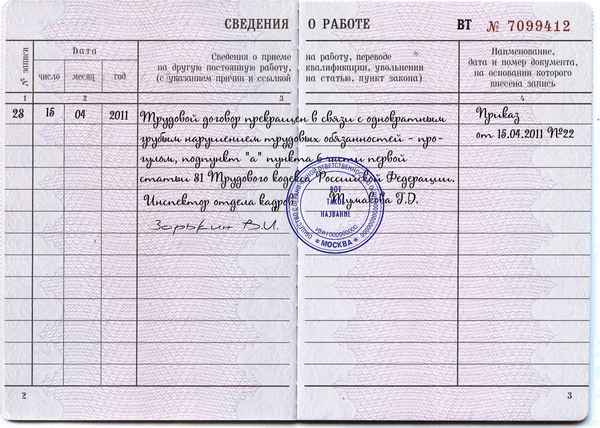 СВЕДЕНИЯ О РАБОТЕ
ВТ № 7099412
№ записи
Дата
число месяц год
Сведения о приеме на работу, переводе
на другую постоянную работу, квалификации, увольнении
(с указанием причин и ссылкой на статью, пункт закона)
Наименование,
дата и номер документа,
на основании которого
внесена запись
1 2 3 4
28 15 04 2011
Трудовой договор прекращен в связи с однократным
грубым нарушением трудовых обязанностей - про-
гулом, подпункт "а" пункта 6 части первой
статьи 81 Трудового кодекса Российской Федерации.
Инспектор отдела кадров Тумакова Г.D.
Зорькин В.И.
Приказ
от 15.04.2011 №22
ВОТ
ТАКОЕ
НАЗВАНИЕ
* МОСКВА *
2
3